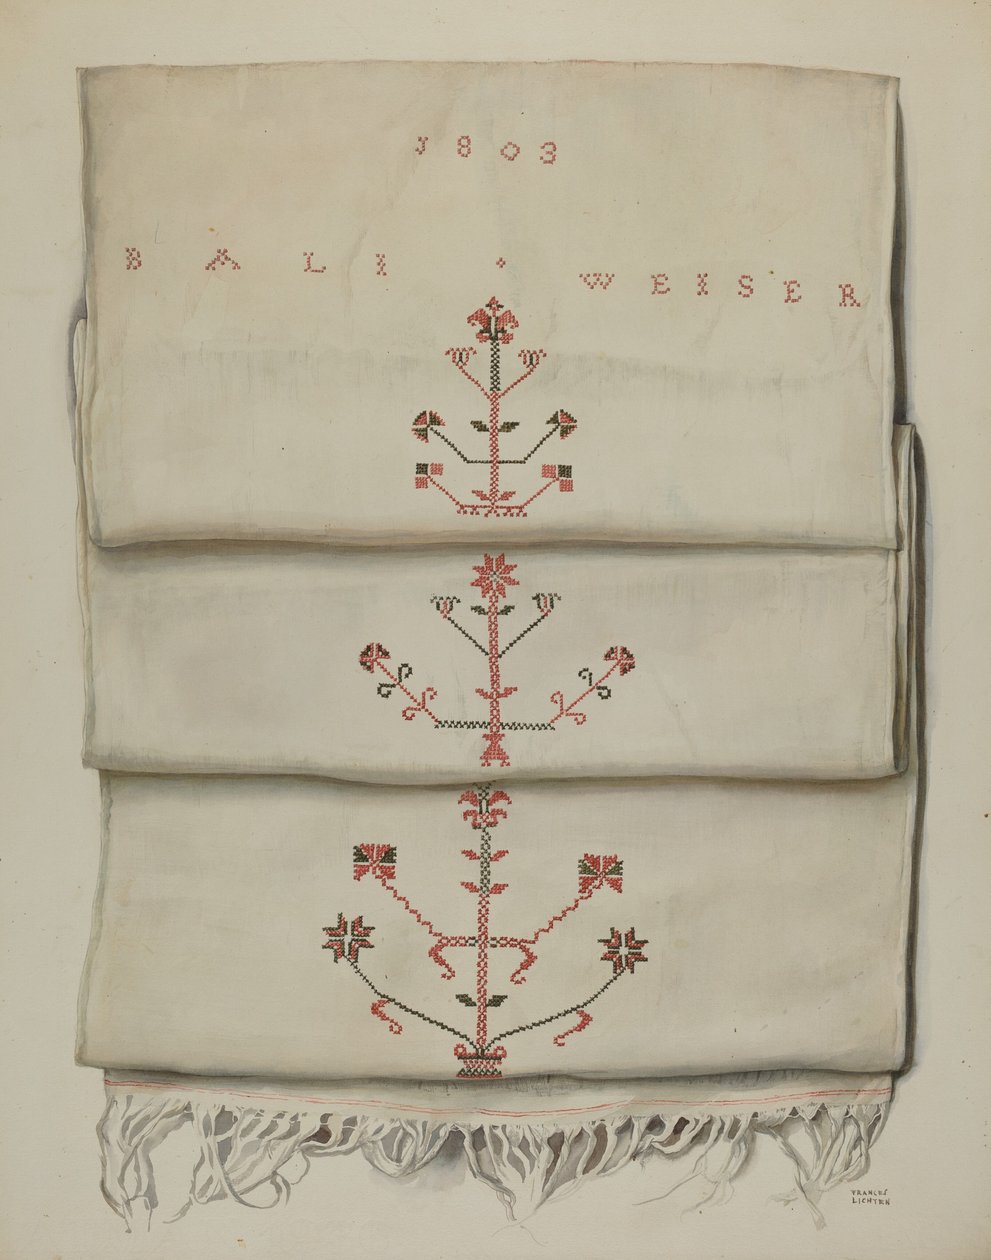 J803
BALI · WEISER
FRANCES
LICHTEN